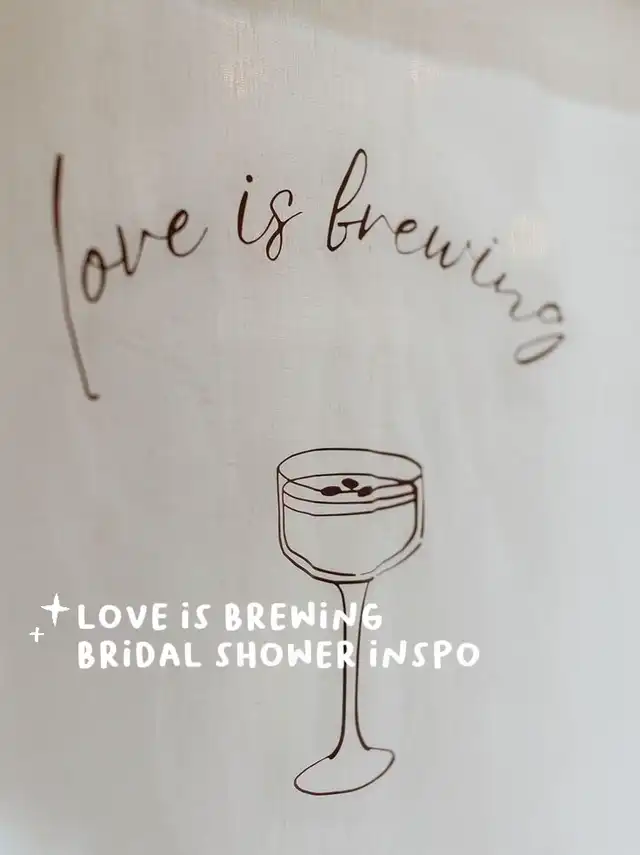 love is brewing
LOVE iS BREWiNG
BRiDAL SHOWER iNSPO